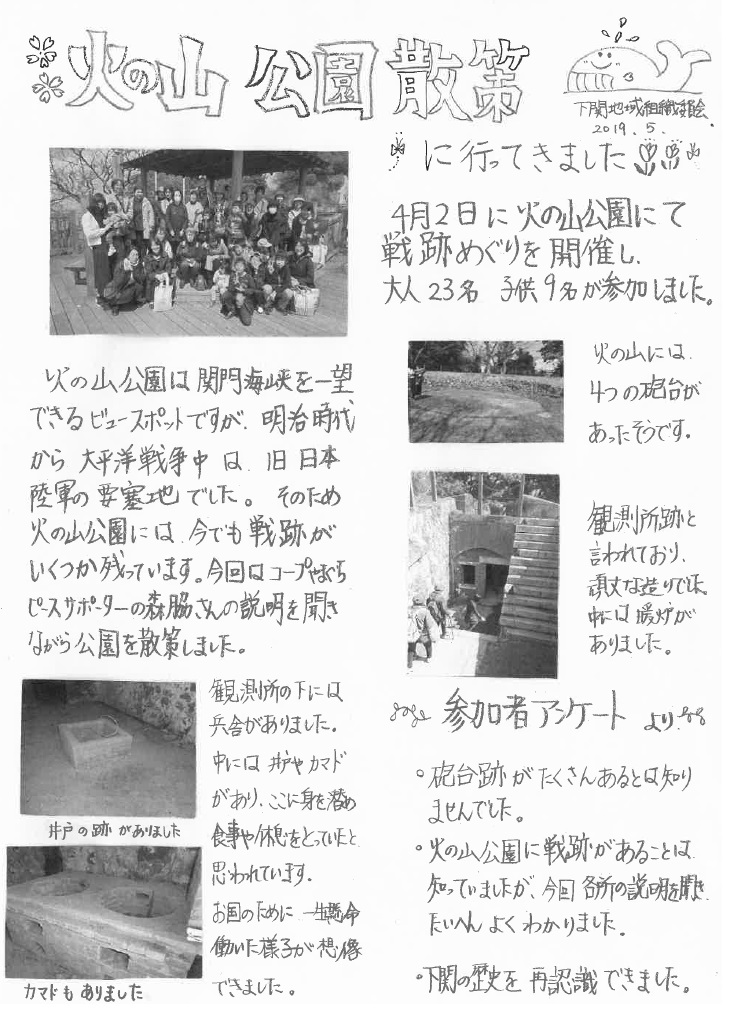 火の山 公園 散策
下関地域組織委員会
2019.5.
に行ってきました
4月2日に火の山公園にて
戦跡めぐりを開催し、
大人23名 子供9名が参加しました。
火の山公園は関門海峡を一望
できるビュースポットですが、明治時代
から大平洋戦争中は、旧日本
陸軍の要塞地でした。そのため
火の山公園には、今でも戦跡が
いくつか残っています。今回はコープやまぐち
ピースサポーターの森脇さんの説明を聞き
ながら公園を散策しました。
火の山には、
4つの砲台が
あったそうです。
観測所跡と
言われており、
頑丈な造りでした。
中には暖炉が
ありました。
井戸の跡がありました
カマドもありました
観測所の下には
兵舎がありました。
中には井戸やカマド
があり、ここに身を潜め
食事や休息をとっていたと
思われています。
お国のために一生懸命
働いた様子が想像
できました。
参加者アンケート より
・砲台跡がたくさんあるとは知り
ませんでした。
・火の山公園に戦跡があることは
知っていましたが、今回各所の説明を聞き
たいへんよくわかりました。
・下関の歴史を再認識できました。